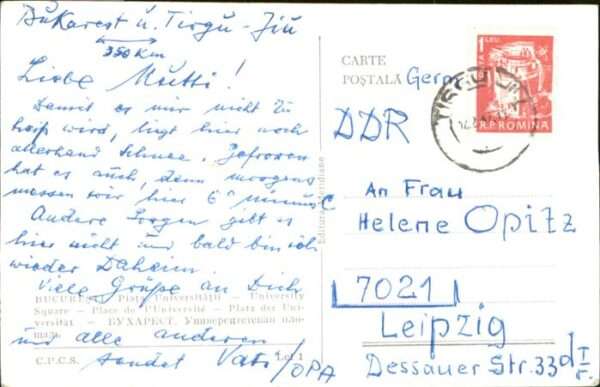 Bukarest u. Tirgu-Jiu
350 Km
Liebe Mutti!
Damit es mir nicht zu
heiß wird, liegt hier noch
allerhand Schnee. Gefroren
hat es auch, denn morgens
messen wir hier 6° minus C
Andere Sorgen gibt es
hier nicht und bald bin ich
wieder Daheim.
Viele Grüße an Dich
und alle anderen
sendet Vati/OPA
BUCUREȘTI. Piața Universității — University
Square — Place de l'Université — Platz der Uni-
versität — БУХАРЕСТ. Университетская пло-
щадь
C.P.C.S.
Editura Meridiane
CARTE
POȘTALĂ
Germ.
DDR
1 LEU
R.P. ROMINA
TIRGU JIU
An Frau
Helene Opitz
7021
Leipzig
Dessauer Str. 33d I/r.